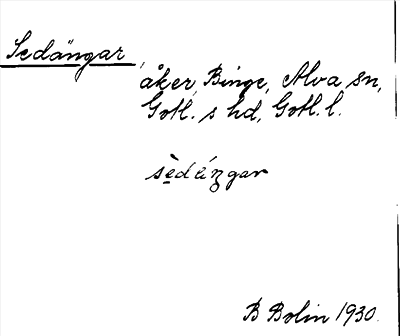 Sedängar,
åker, Binge, Alva sn,
Gotl. s hd, Gotl. l.
sèdáŋgar
B Bolin 1930.